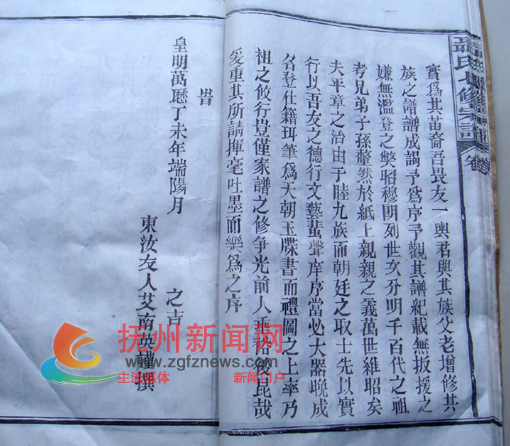 氏修宗譜卷
實爲其苗裔吾畏友一輿君與其族父老增修其
族之譜譜成謁予爲序予觀其譜紀載無扳援之
嫌無濫登之弊昭穆明列世次分明千百代之祖
考兄弟子孫釐然於紙上親親之義萬世維昭矣
夫平章之治由于睦九族而朝廷之取士先以實
行以吾友之德行文藝蜚聲庠序當必大器晚成
名登仕籍珥筆爲天朝玉牒書而禮圖之上率乃
祖之攸行豈僅家譜之修爭光前人垂裕後昆哉
爰重其所請揮毫吐墨而樂爲之序
旹
皇明萬曆丁未年端陽月 之吉
東汝友人艾南英謹撰
抚州新闻网
www.zgfznews.com
主流媒体 新闻门户